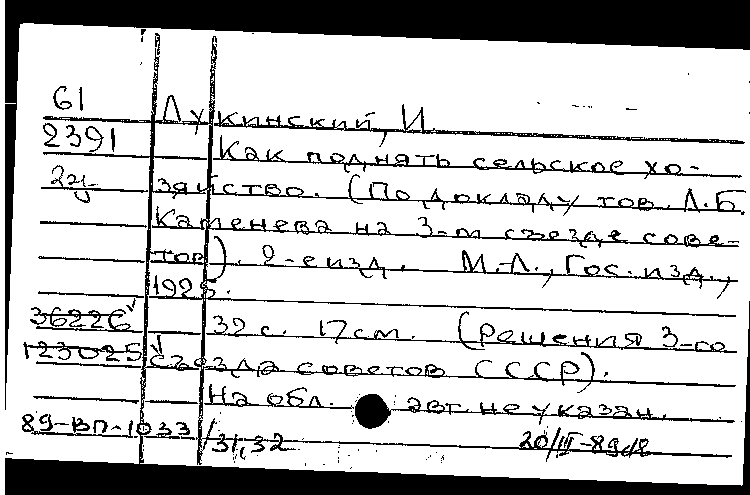 61 Лукинский, И.
2391 Как поднять сельское хо-
зяйство. (По докладу тов. Л.Б.
Каменева на 3-м съезде сове-
тов). 2-е изд. М.-Л., Гос. изд.,
1925.
36226 32 с. 17 см. (Решения 3-го
123025 съезда советов СССР).
На обл. авт. не указан.
89-ВП-1033 /31,32 20/III-89